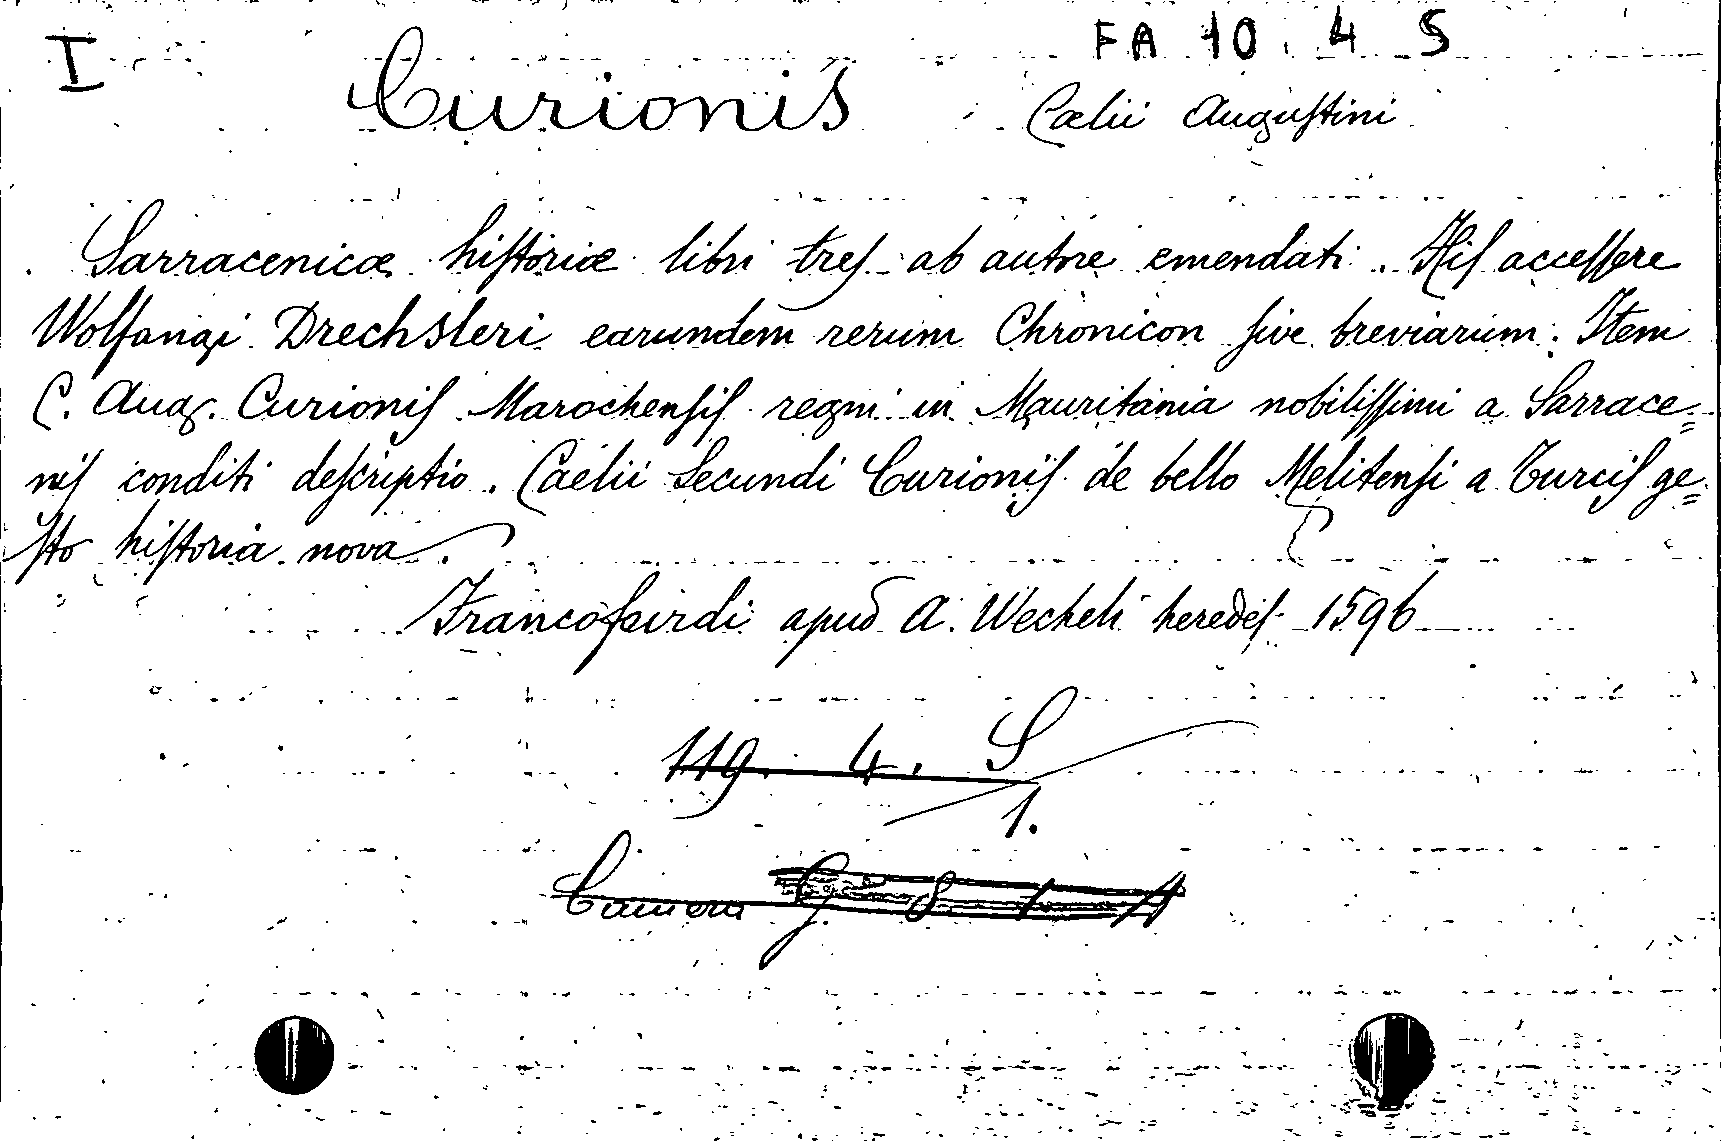 I
FA 10. 4 S
Curionis Cælii Auguſtini
Sarracenicæ hiſtoriæ libri treſ ab autore emendati. Hiſ acceſſere
Wolfangi Drechsleri earundem rerum Chronicon ſive breviarum: Item
C. Aug. Curioniſ Marochenſiſ regni in Mauritania nobiliſſimi a Sarrace=
niſ conditi deſcriptio. Caelii Secundi Curioniſ de bello Melitenſi a Turciſ ge=
ſto hiſtoria nova.
Francofurdi apud A. Wecheli heredeſ 1596
119. 4. S
1.
Camera